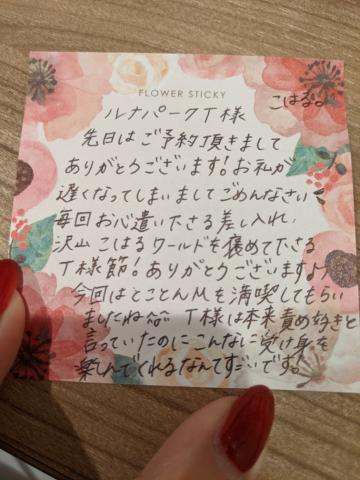 FLOWER STICKY
こはる♪
ルナパークT様
先日はご予約頂きまして
ありがとうございます!お礼が
遅くなってしまいましてごめんなさい
毎回お心遣い下さる差し入れ、
沢山こはるワールドを褒めて下さる
T様節!ありがとうございますよ
今回はとことんMを満喫してもらい
ましたね^^ T様は本来責め好きと
言っていたのにこんなに受け身を
楽しんでくれるなんてすごいです。